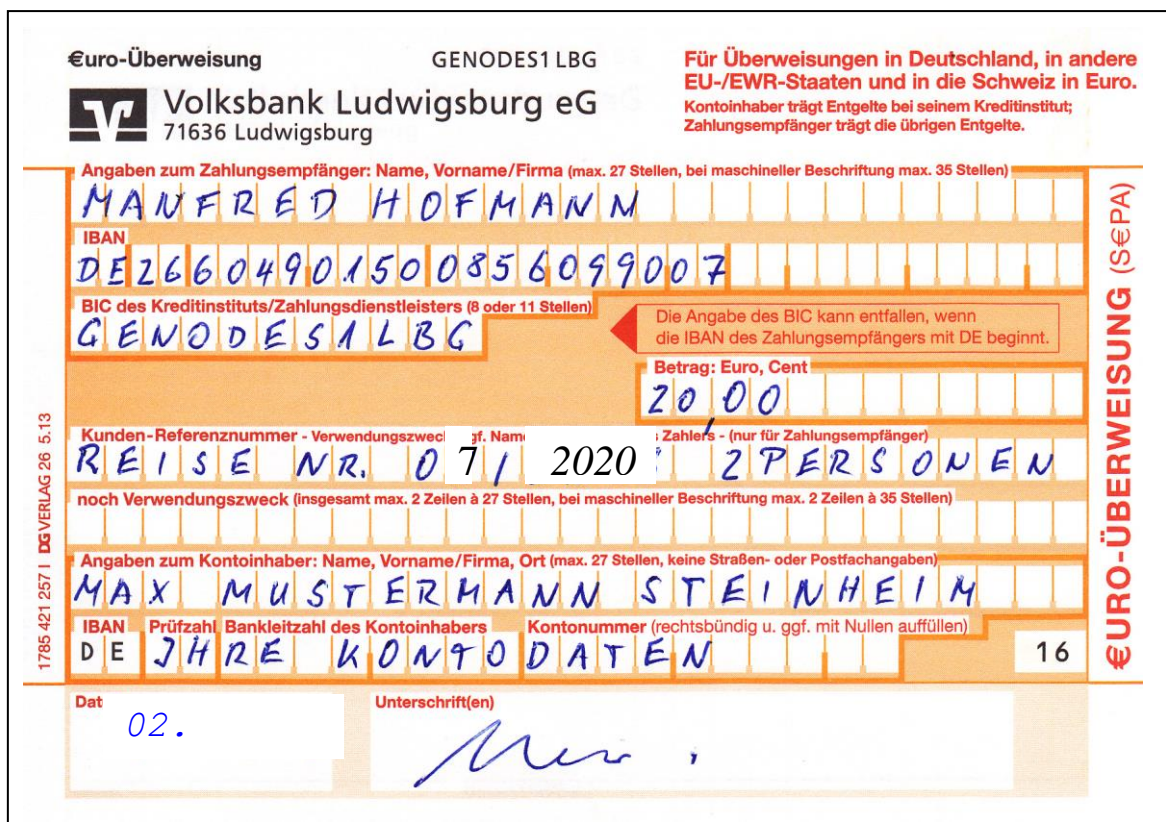 €uro-Überweisung GENODES1 LBG
Für Überweisungen in Deutschland, in andere
EU-/EWR-Staaten und in die Schweiz in Euro.
Kontoinhaber trägt Entgelte bei seinem Kreditinstitut;
Zahlungsempfänger trägt die übrigen Entgelte.
Volksbank Ludwigsburg eG
71636 Ludwigsburg
Angaben zum Zahlungsempfänger: Name, Vorname/Firma (max. 27 Stellen, bei maschineller Beschriftung max. 35 Stellen)
MANFRED HOFMANN
IBAN
DE26604901500856099007
BIC des Kreditinstituts/Zahlungsdienstleisters (8 oder 11 Stellen)
GENODES1LBG
Die Angabe des BIC kann entfallen, wenn
die IBAN des Zahlungsempfängers mit DE beginnt.
Betrag: Euro, Cent
20,00
Kunden-Referenznummer - Verwendungszweck gf. Name Zahlers - (nur für Zahlungsempfänger)
REISE NR. 07/ 2020 2 PERSONEN
noch Verwendungszweck (insgesamt max. 2 Zeilen à 27 Stellen, bei maschineller Beschriftung max. 2 Zeilen à 35 Stellen)
Angaben zum Kontoinhaber: Name, Vorname/Firma, Ort (max. 27 Stellen, keine Straßen- oder Postfachangaben)
MAX MUSTERMANN STEINHEIM
IBAN Prüfzahl Bankleitzahl des Kontoinhabers Kontonummer (rechtsbündig u. ggf. mit Nullen auffüllen)
DE IHRE KONTODATEN 16
Dat Unterschrift(en)
02.
€URO-ÜBERWEISUNG (S€PA)
1785 421 257 I DG VERLAG 26 5.13